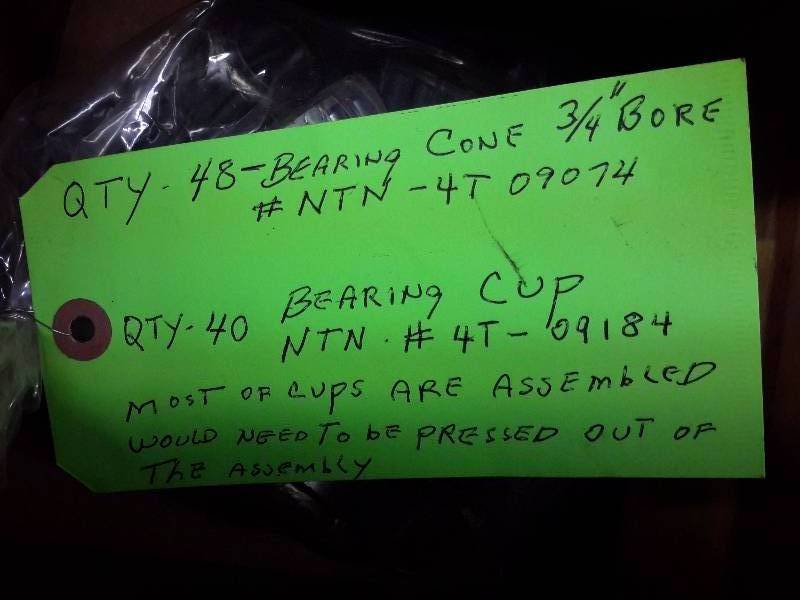 QTY - 48 - BEARING CONE 3/4" BORE
# NTN - 4T 09074
QTY - 40 BEARING CUP
NTN . # 4T - 09184
MOST OF CUPS ARE ASSEMBLED
WOULD NEED TO BE PRESSED OUT OF
THE ASSEMBLY